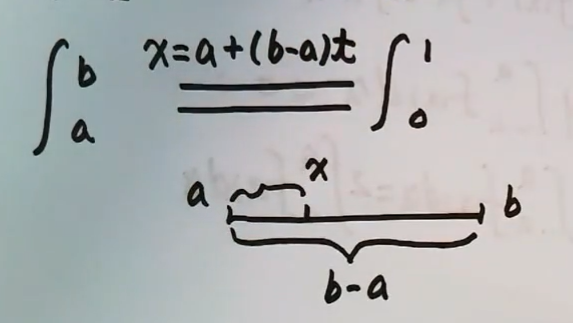 ∫_a^b x=a+(b-a)t ∫_0^1
a x b
b-a